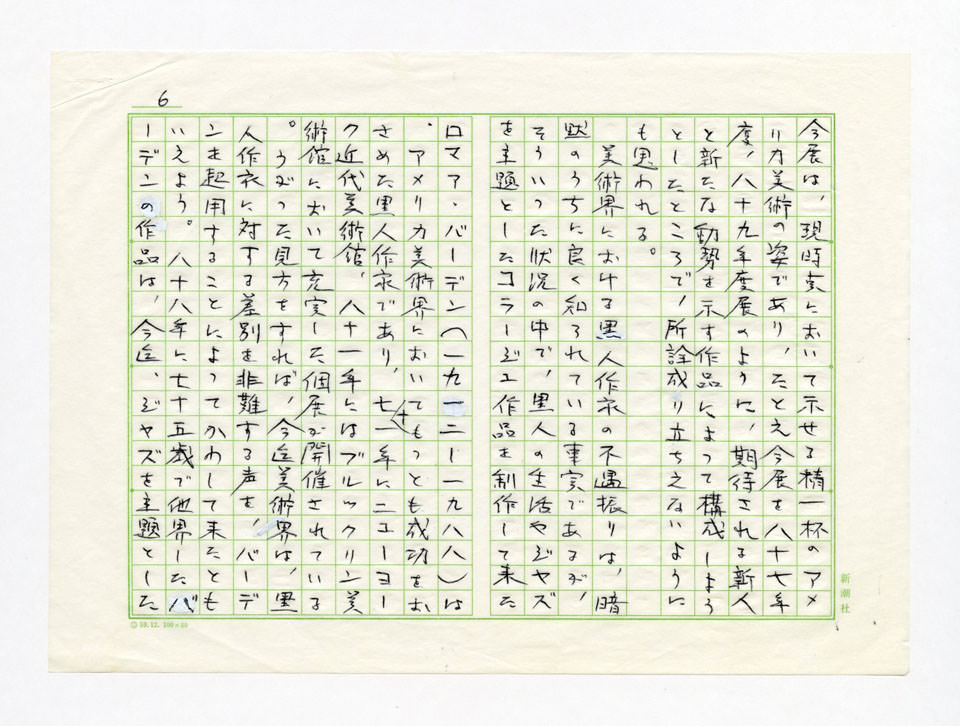 6
今展は、現時点において示せる精一杯のアメ
リカ美術の姿であり、たとえ今展を八十七年
度、八十九年度展のように、期待される新人
と新たな動勢を示す作品によって構成しよう
としたところで、所詮成り立ちえないように
も思われる。
美術界における黒人作家の不遇振りは、暗
黙のうちに良く知られている事実であるが、
そういった状況の中で、黒人の生活やジャズ
を主題としたコラージュ作品を制作して来た
ロマア・バーデン(一九一二ー一九八八)は
、アメリカ美術界においてもっとも成功をお
さめた黒人作家であり、七十一年にニューヨー
ク近代美術館、八十一年にはブルックリン美
術館において充実した個展が開催されている
。うがった見方をすれば、今迄美術界は、黒
人作家に対する差別を非難する声を、バーデ
ンを起用することによってかわして来たとも
いえよう。八十八年に七十五歳で他界したバ
ーデンの作品は、今迄、ジャズを主題とした
新潮社
59.12. 100×50